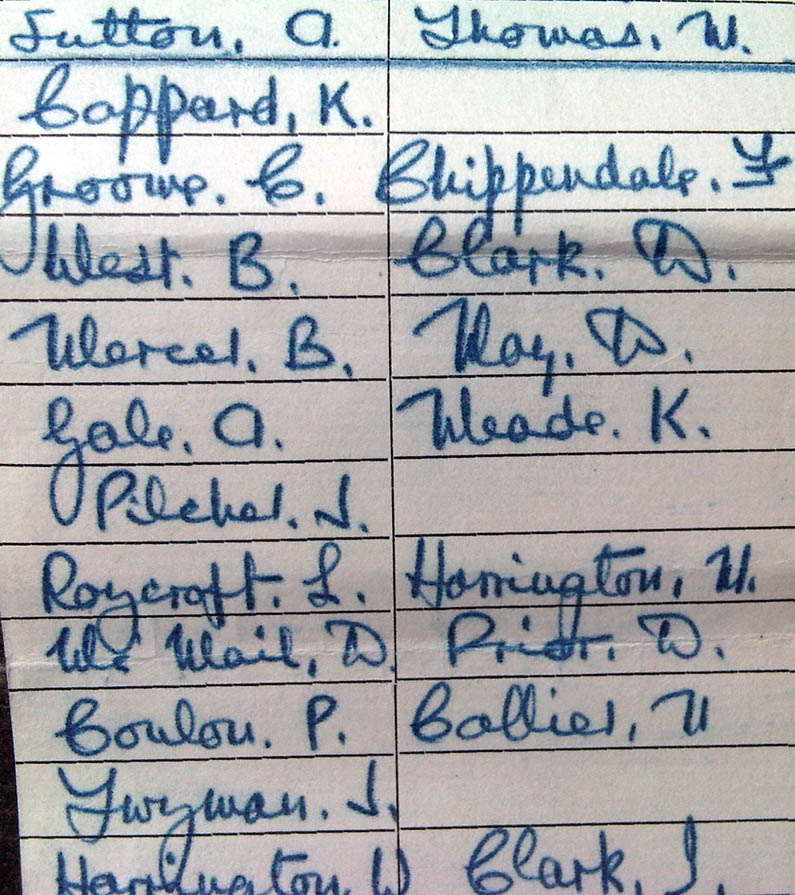 Sutton. A. Thomas. W.
Coppard, K.
Groome. C. Chippendale. F
West. B. Clark. D.
Mercer. B. May. D.
Gale. A. Meade. K.
Pilcher. J.
Roycroft. L. Harrington, M.
Mc Mail, D. Prior. D.
Conlon. P. Collier, M
Twyman. J.
Harrington W Clark, J.